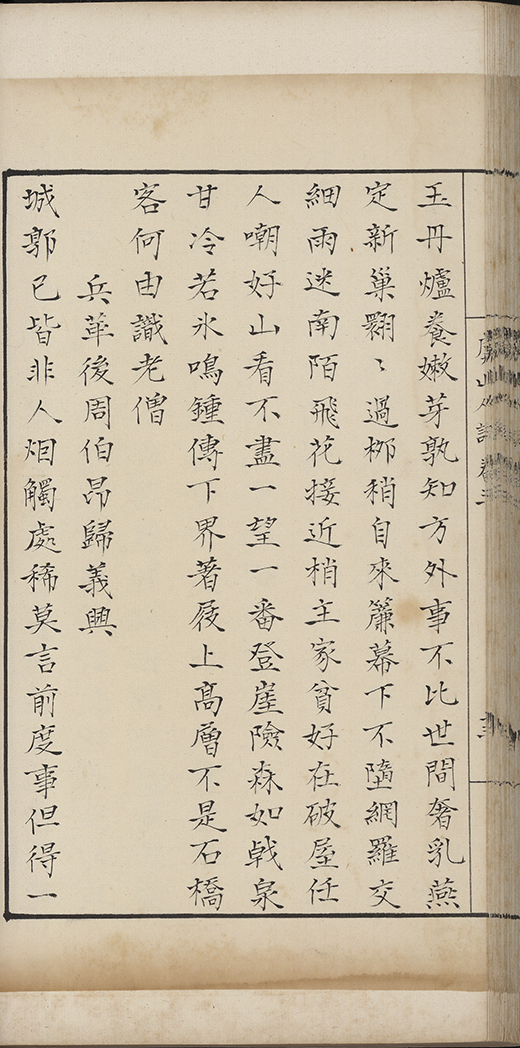 玉丹爐養嫩芽孰知方外事不比世間奢乳燕
定新巢翾〻過栁稍自來簾幕下不墮網羅交
細雨迷南陌飛花接近梢主家貧好在破屋任
人嘲好山看不盡一望一番登崖險森如戟泉
甘冷若氷鳴鍾傳下界著屐上髙層不是石橋
客何由識老僧
兵革後周伯昂歸義興
城郭已皆非人烟觸處稀莫言前度事但得一